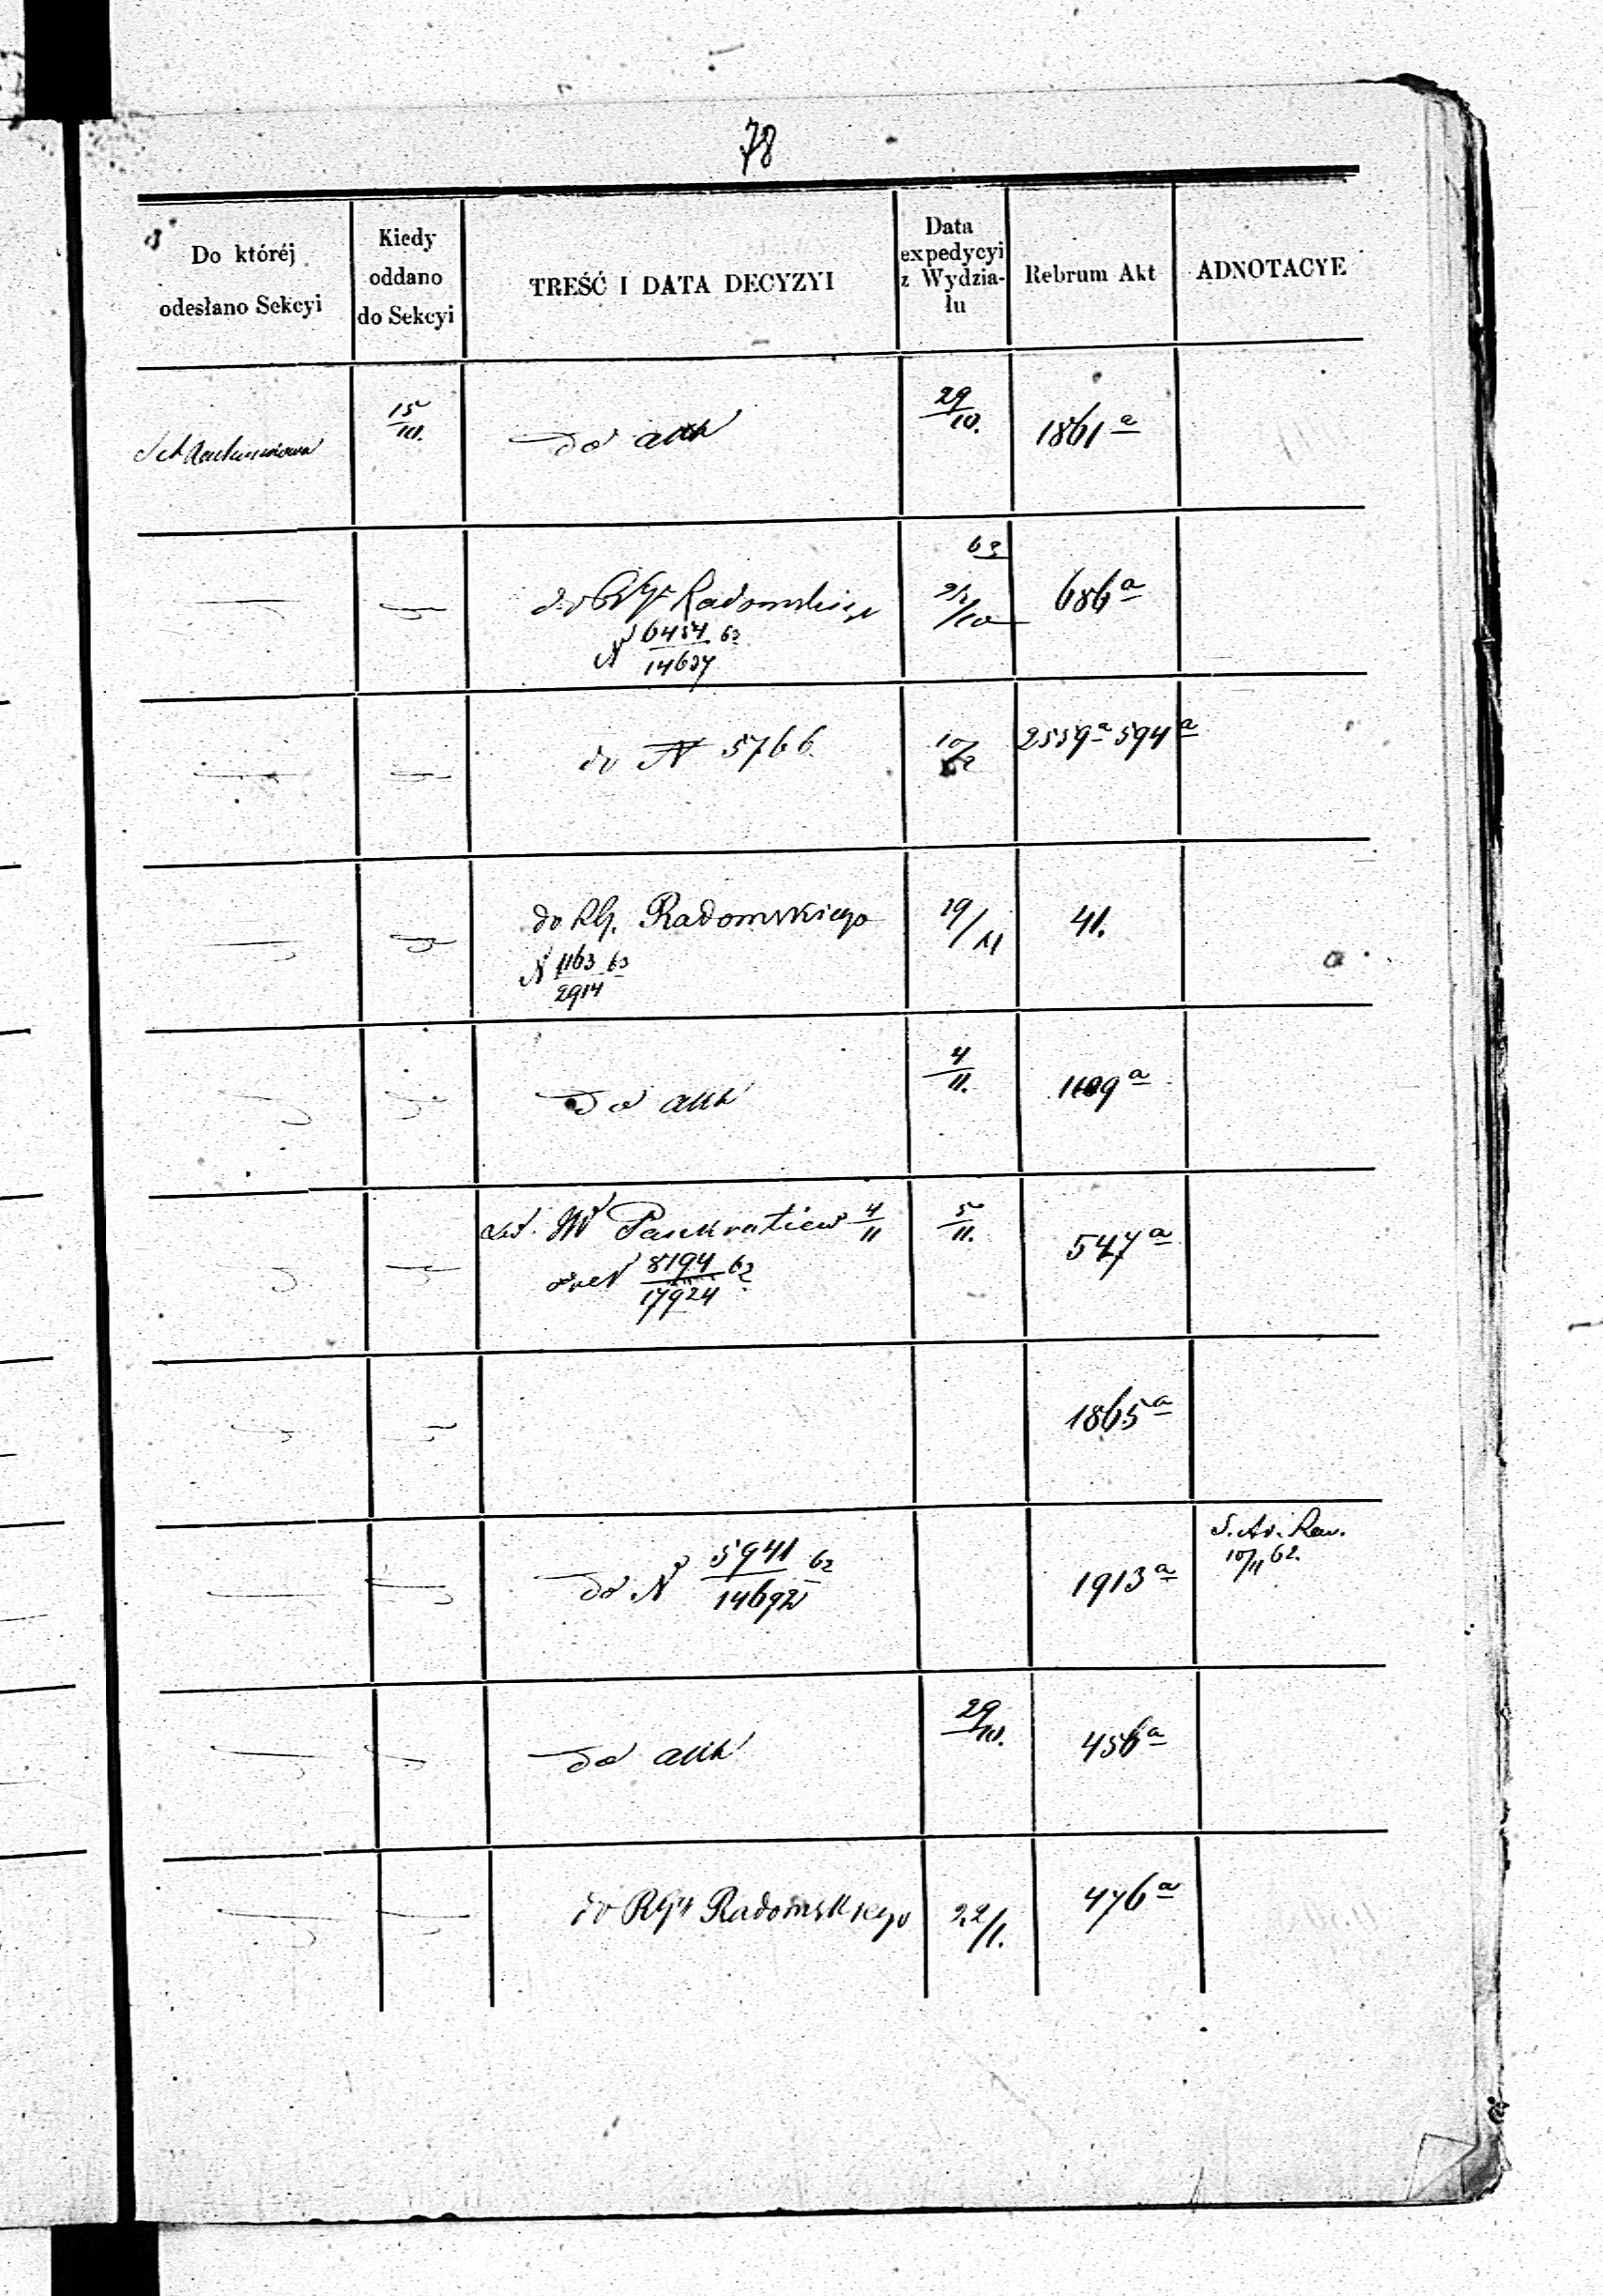 78
Do któréj
odesłano Sekcyi
Kiedy
oddano
do Sekcyi
TREŚĆ I DATA DECYZYI
Data
expedycyi
z Wydzia-
łu
Rebrum Akt
ADNOTACYE
15/10.
do akt
29/10.
1861 a
do Radomskiego
N 6454/14637 63
686 a
do N 5766
2559 a 594 a
do RG. Radomskiego
N 1163/2914 63
19/11
41.
do akt
4/11.
1109 a
Pankratiew 4/11
8194/17924 62
5/11.
547 a
1865 a
do N 5941/14692 62
1913 a
10/11 62.
do akt
29/10.
456 a
do RGu Radomskiego
22/1.
476 a